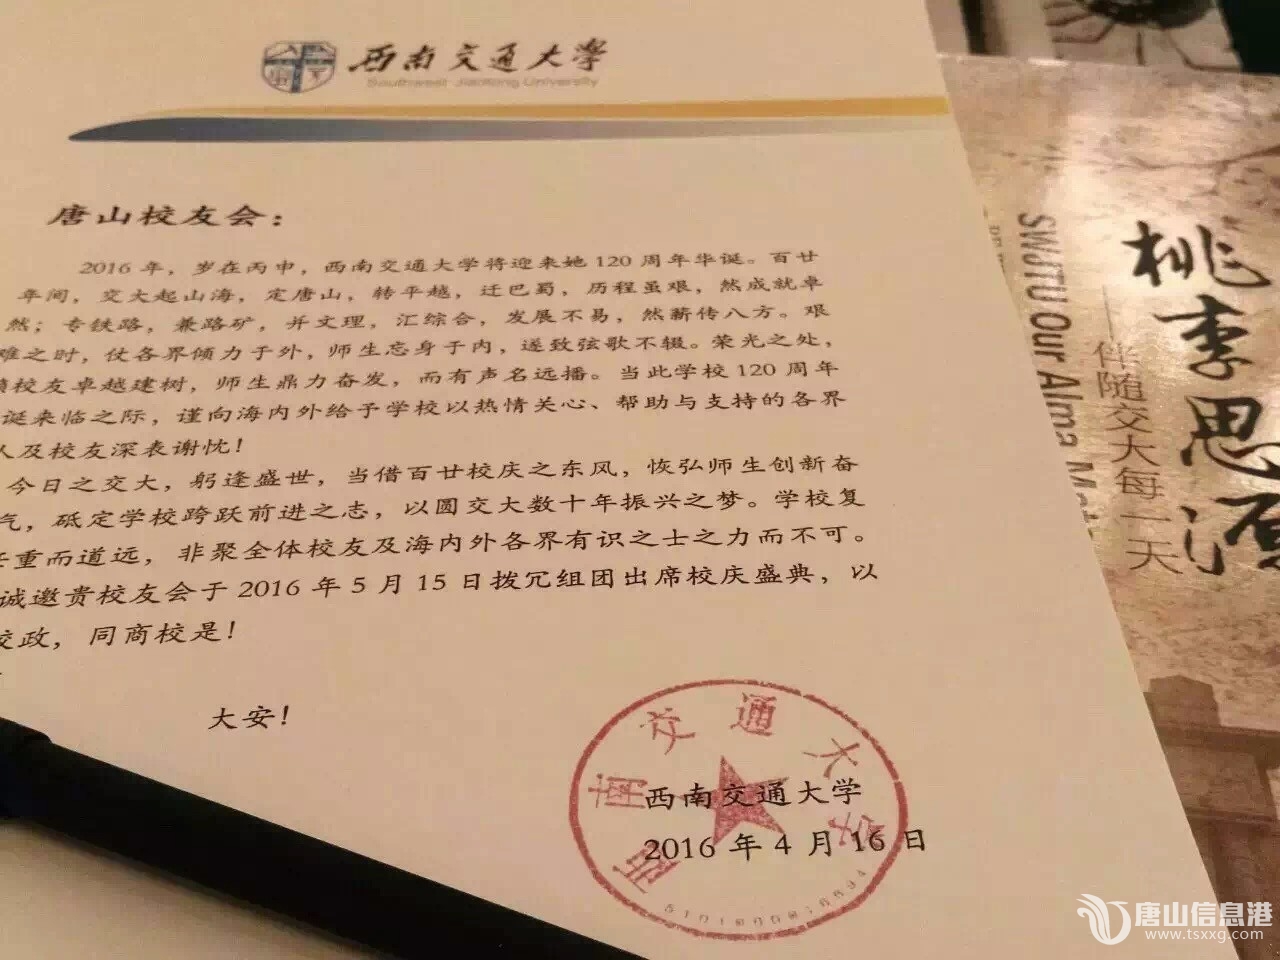 西南交通大学
Southwest Jiaotong University
唐山校友会：
2016年，岁在丙申，西南交通大学将迎来她120周年华诞。百廿
年间，交大起山海，定唐山，转平越，迁巴蜀，历程虽艰，然成就卓
然；专铁路，兼路矿，并文理，汇综合，发展不易，然薪传八方。艰
难之时，仗各界倾力于外，师生忘身于内，遂致弦歌不辍。荣光之处，
校友卓越建树，师生鼎力奋发，而有声名远播。当此学校120周年
诞来临之际，谨向海内外给予学校以热情关心、帮助与支持的各界
人及校友深表谢忱！
今日之交大，躬逢盛世，当借百廿校庆之东风，恢弘师生创新奋
气，砥定学校跨跃前进之志，以圆交大数十年振兴之梦。学校复
任重而道远，非聚全体校友及海内外各界有识之士之力而不可。
诚邀贵校友会于2016年5月15日拨冗组团出席校庆盛典，以
校政，同商校是！
大安！
西南交通大学
西南交通大学
2016年4月16日
桃李思源
——伴随交大每一天
SWJTU Our Alma Mat
唐山信息港
www.tsxxg.com